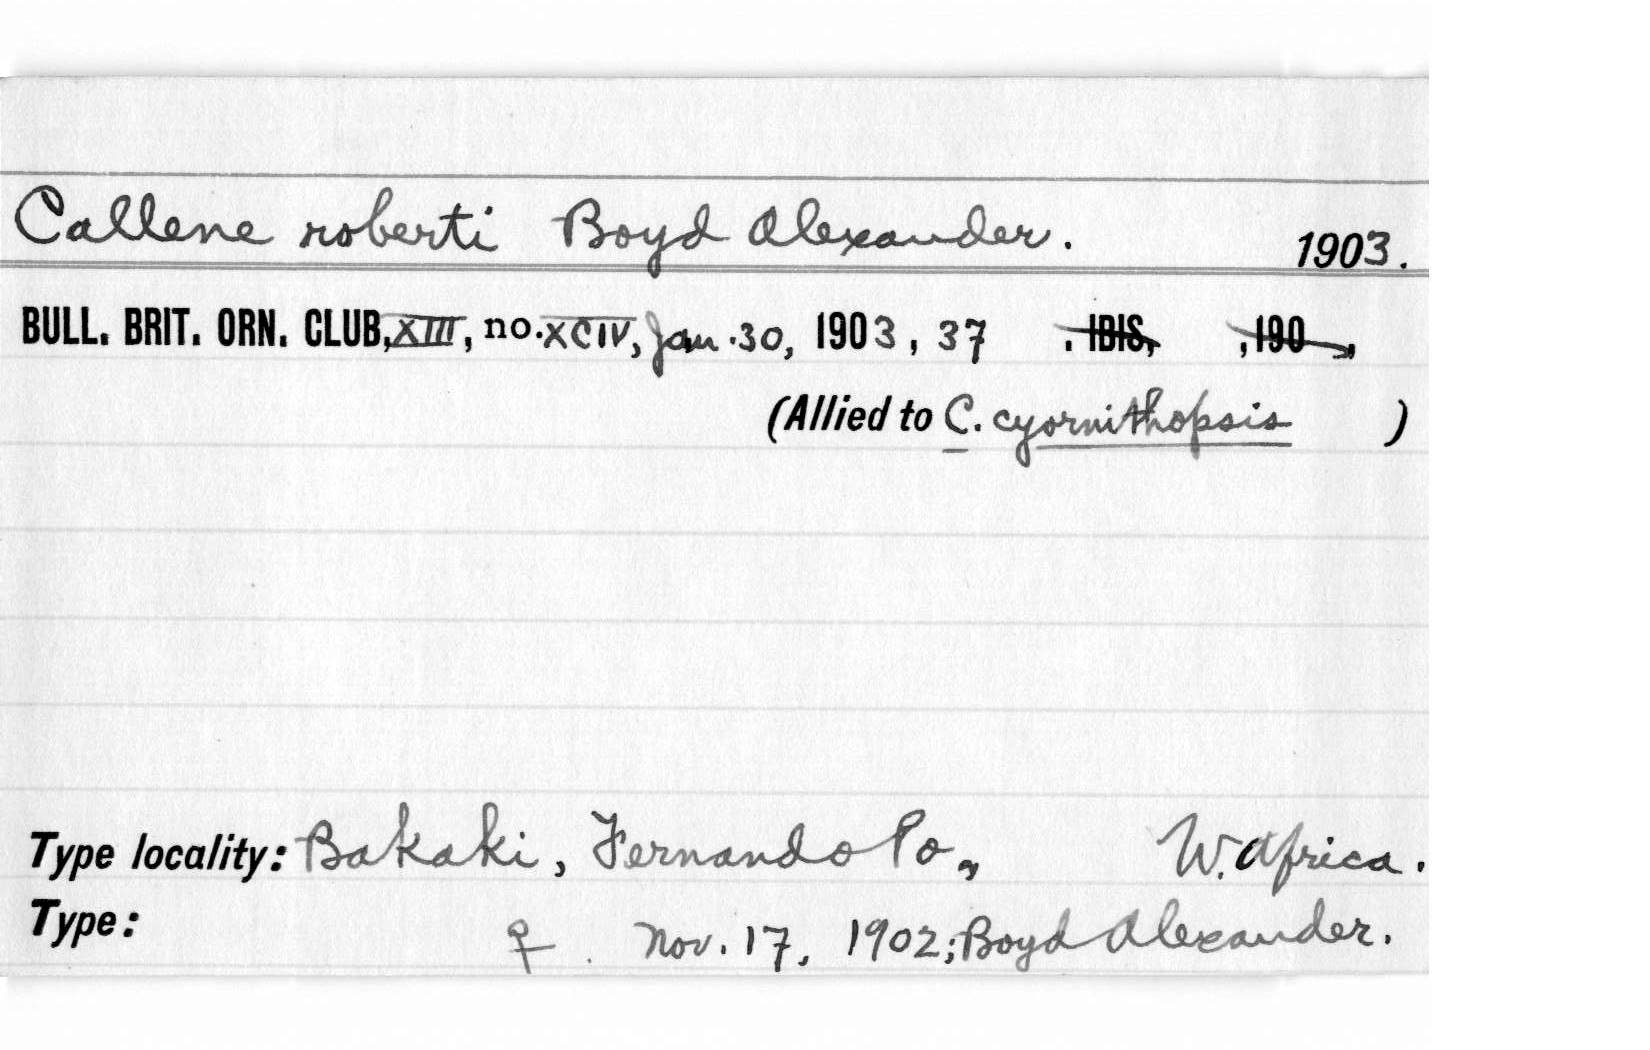 Callene roberti Boyd Alexander. 1903.
BULL. BRIT. ORN. CLUB, XIII, no. XCIV, Jan. 30, 1903, 37 . IBIS, , 190 ,
(Allied to C. cyornithopsis )
Type locality: Bakaki, Fernando Po, W. Africa.
Type: ♀. Nov. 17, 1902; Boyd Alexander.